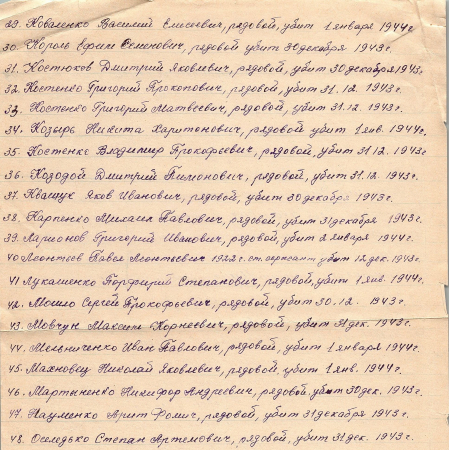 29. Коваленко Василий Елисеевич, рядовой, убит 1 января 1944г
30. Король Ефим Семенович, рядовой убит 30 декабря 1943г.
31. Костюков Дмитрий Яковлевич, рядовой, убит 30 декабря 1943г.
32. Костенко Григорий Прокопович, рядовой, убит 31.12. 1943г.
33. Костенко Григорий Матвеевич, рядовой, убит 31.12. 1943г.
34. Козырь Никита Харитонович, рядовой, убит 1 янв. 1944г.
35. Костенко Владимир Прокофьевич, рядовой, убит 31.12. 1943г.
36. Козодой Дмитрий рядовой, убит 31.12. 1943г.
37. Кващук Яков Иванович, рядовой, убит 30 декабря 1943г.
38. Карпенко Михаил Павлович, рядовой, убит 31 декабря 1943г.
39. Ларионов Григорий Иванович, рядовой, убит 2 января 1944г.
40. Леонтьев Павел Леонтьевич 1922г. ст. сержант убит 12 дек. 1943г.
41 Лукашенко Порфирий Степанович, рядовой, убит 1 янв. 1944г.
42. Мошло Сергей Прокофьевич, рядовой, убит 30.12. 1943г.
43. Мовчун Максим Корнеевич, рядовой, убит 31 дек. 1943г.
44. Мельниченко Иван Павлович, рядовой, убит 1 января 1944г.
45. Махновец Николай Яковлевич, рядовой, убит 1 янв. 1944г.
46. Мартыненко Никифор Андреевич, рядовой, убит 30 дек. 1943г.
47. Науменко Фомич, рядовой, убит 31 декабря 1943г.
48. Оселедько Степан Артемович, рядовой, убит 31 дек. 1943г.